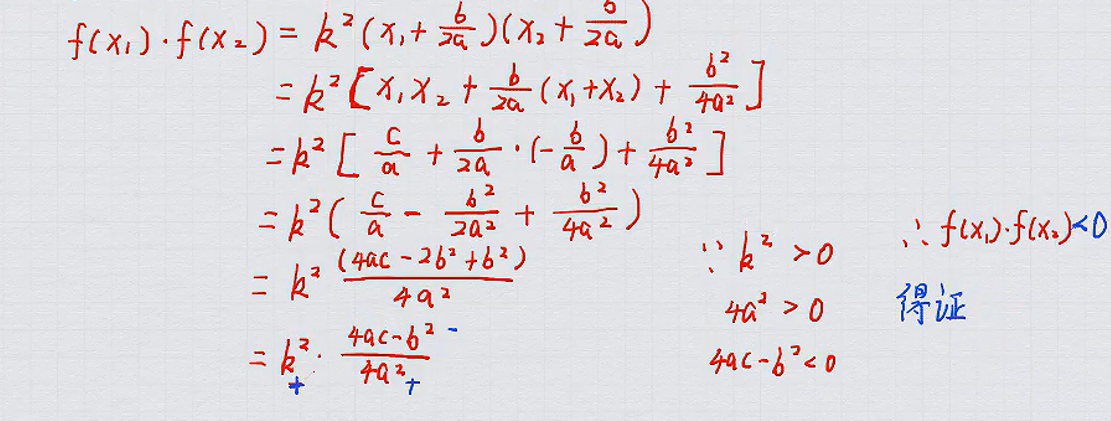 f(x₁)·f(x₂) = k²(x₁+b/2a)(x₂+b/2a)
= k²[x₁x₂ + b/2a (x₁+x₂) + b²/4a²]
= k²[c/a + b/2a·(-b/a) + b²/4a²]
= k²(c/a - b²/2a² + b²/4a²)
= k² (4ac-2b²+b²)/4a²
= k²· (4ac-b²)/4a²
+ - +
∵ k² > 0
4a² > 0
4ac-b² < 0
∴ f(x₁)·f(x₂)<0
得证